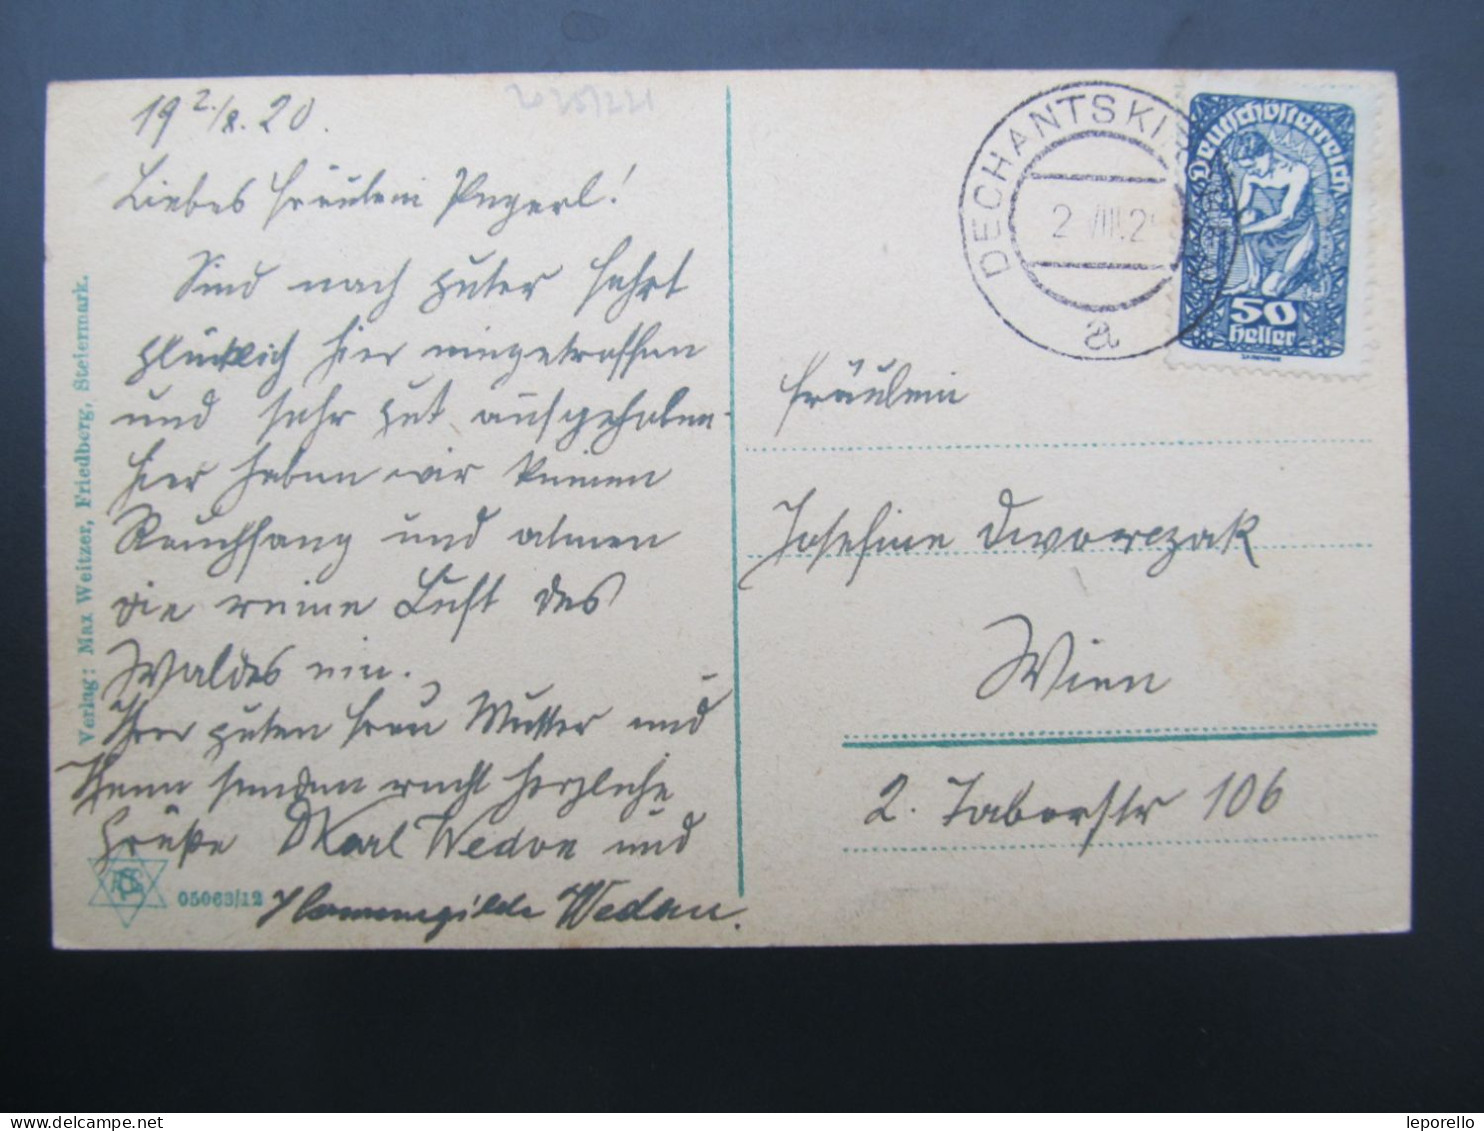 19 2./8. 20.
Liebes Fräulein
Sind nach guter Fahrt
glücklich hier eingetroffen
und sehr gut aufgehoben.
Hier haben wir keinen
Rauchfang und atmen
die reine Luft des
Waldes ein.
Ihrer guten Frau Mutter und
Ihnen senden recht herzliche
Grüße Karl und
Verlag: Max Weitzer, Friedberg, Steiermark.
05063/12
DECHANTSKI
2 VIII.2
a
Deutschösterreich
50
Heller
Fräulein
Josefine Dworczak
Wien
2. Taborstr 106
leporello